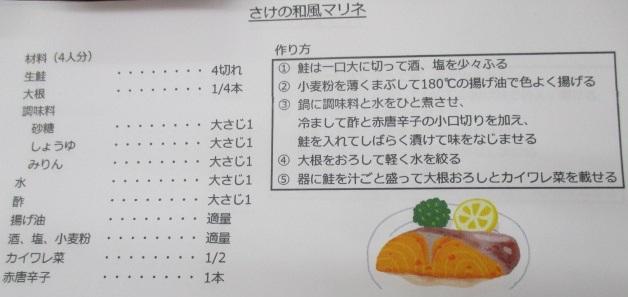 さけの和風マリネ
材料（4人分）
生鮭 ・・・・・・・・ 4切れ
大根 ・・・・・・・・ 1/4本
調味料
砂糖 ・・・・・・・・ 大さじ1
しょうゆ ・・・・・・・・ 大さじ1
みりん ・・・・・・・・ 大さじ1
水 ・・・・・・・・ 大さじ1
酢 ・・・・・・・・ 大さじ1
揚げ油 ・・・・・・・・ 適量
酒、塩、小麦粉 ・・・・・・・・ 適量
カイワレ菜 ・・・・・・・・ 1/2
赤唐辛子 ・・・・・・・・ 1本
作り方
① 鮭は一口大に切って酒、塩を少々ふる
② 小麦粉を薄くまぶして180℃の揚げ油で色よく揚げる
③ 鍋に調味料と水をひと煮させ、
冷まして酢と赤唐辛子の小口切りを加え、
鮭を入れてしばらく漬けて味をなじませる
④ 大根をおろして軽く水を絞る
⑤ 器に鮭を汁ごと盛って大根おろしとカイワレ菜を載せる